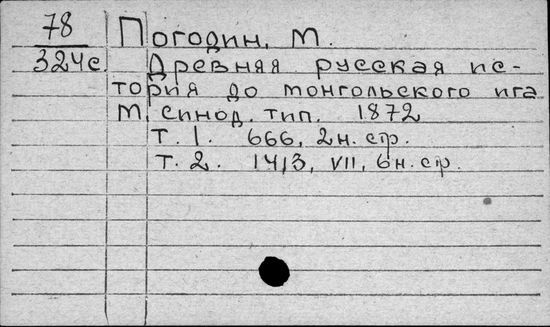 78 Погодин, М.
324с. Древняя русская ис-
тория до монгольского ига
М. синод. тип. 1872
Т. 1. 666, 2н. стр.
Т. 2. 1413, VII, 6н. стр.